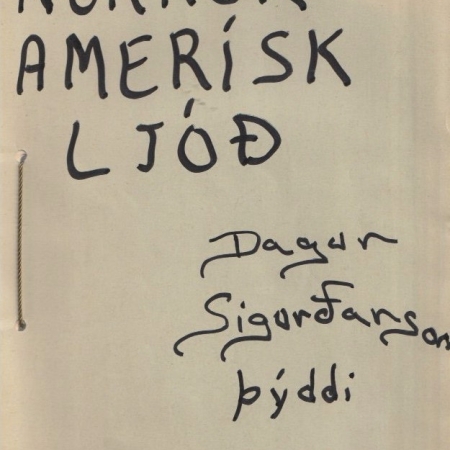 AMERÍSK
LJÓÐ
Dagur
Sigurðarson
þýddi